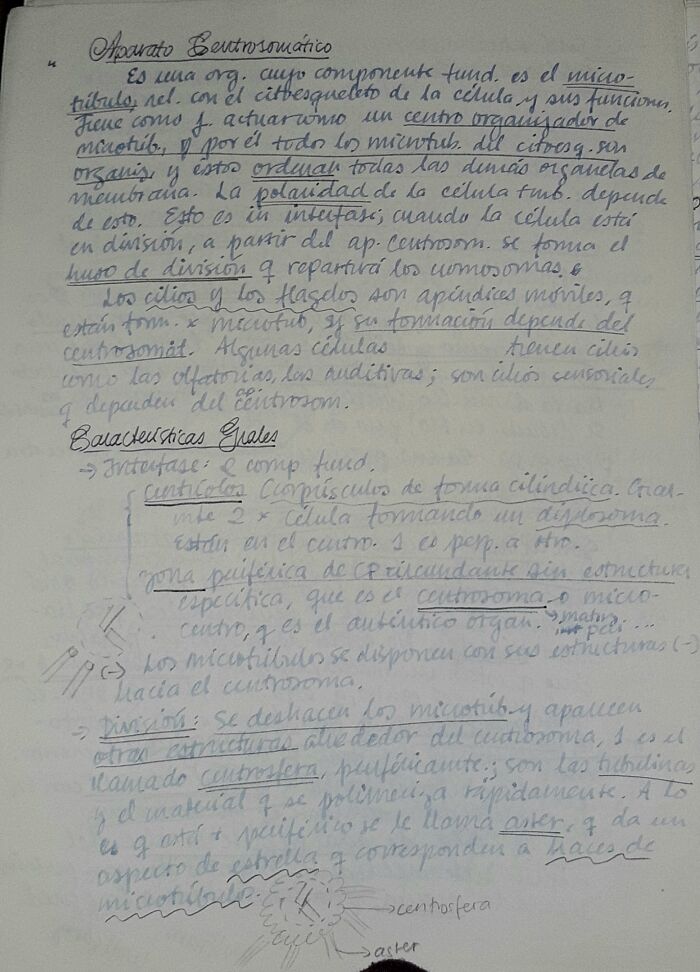 Aparato Centrosomático
Es una org. cuyo componente fund. es el micro-
túbulo, rel. con el citoesqueleto de la célula y sus funciones.
Tiene como f. actuar como un centro organizador de
microtúb., y por él todos los microtub. del citoesq. son
organiz. y estos ordenan todas las demás organelas de
membrana. La polaridad de la célula tmb. depende
de esto. Esto es in interfase; cuando la célula está
en división, a partir del ap. centrosom. se forma el
huso de división q repartirá los cromosomas,
Los cilios y los flagelos son apéndices móviles, q
están form. x microtub, y su formación depende del
centrosomát. Algunas células tienen cilios
como las olfatorias, las auditivas; son cilios sensoriales
q dependen del ap. centrosom.
Características Grales
→ Interfase: 2 comp fund.
Centríolos (corpúsculos de forma cilíndrica. Gral-
mte 2 x célula formando un diplosoma.
Están en el centro. 1 es perp. a otro.
Zona periférica de CP circundante sin estructura
específica, que es el centrosoma o micro-
centro, q es el auténtico organ. → matriz
peri...
(-) Los microtúbulos se disponen con sus estructuras (-)
hacia el centrosoma.
→ División: Se deshacen los microtúb. y aparecen
otras estructuras alrededor del centrosoma, 1 es el
llamado centrosfera, periféricamte.; son las tubulinas
y el material q se polimeriza rápidamente. A lo
q está + periférico se le llama aster, q da un
aspecto de estrella q corresponden a haces de
microtúbulos.
→ centrosfera
→ aster